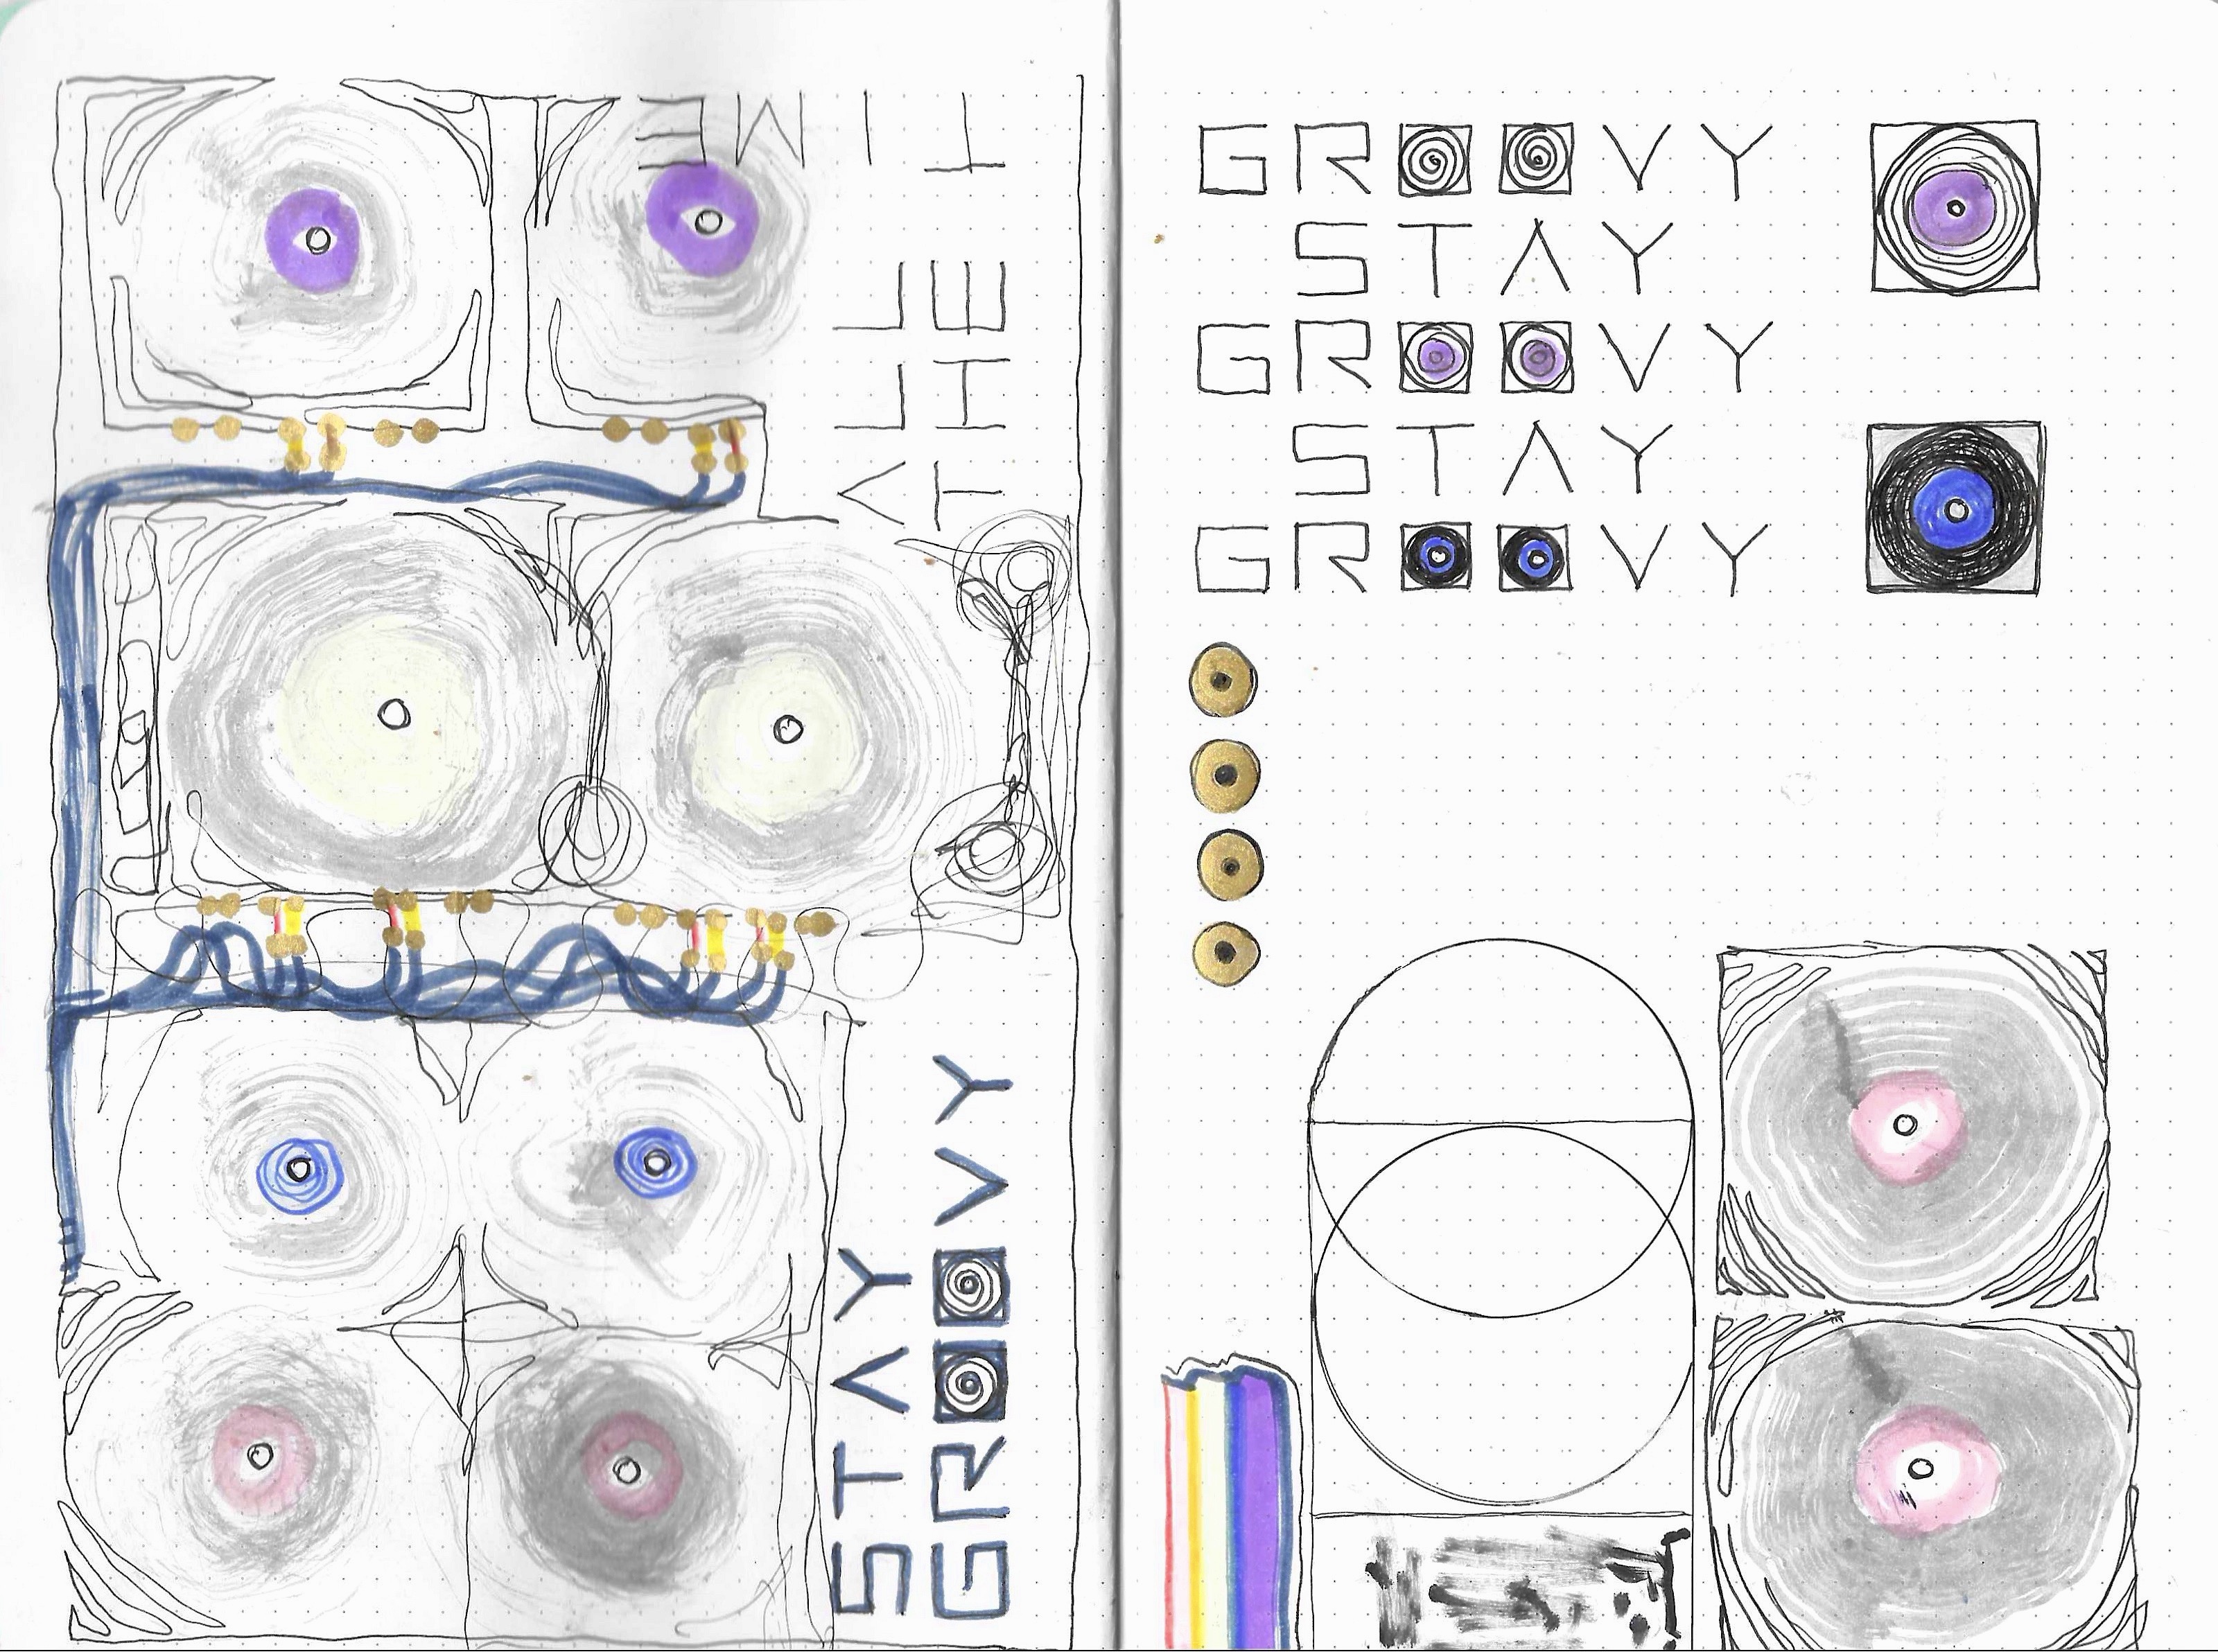 STAY
GROOVY
ALL
THE
TIME
GROOVY
STAY
GROOVY
STAY
GROOVY